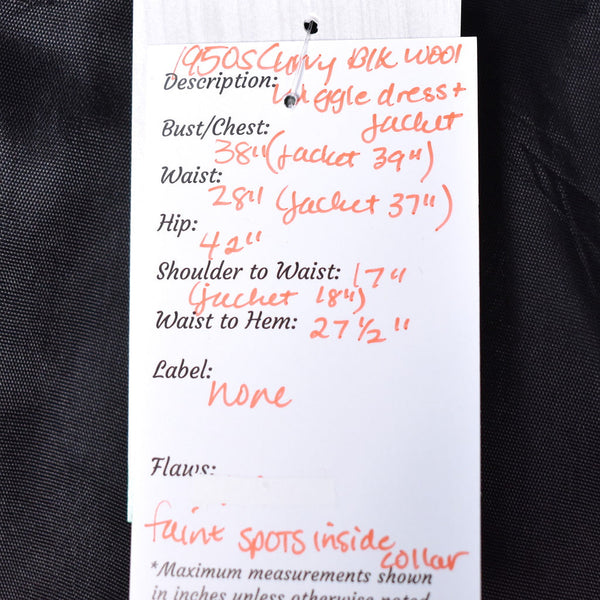 1950s Curvy Blk Wool
Description: Wiggle dress +
Jacket
Bust/Chest:
38" (Jacket 39")
Waist:
28" (Jacket 37")
Hip:
42"
Shoulder to Waist: 17"
(jacket 18")
Waist to Hem: 27 1/2"
Label:
none
Flaws:
faint spots inside
collar
*Maximum measurements shown
in inches unless otherwise noted